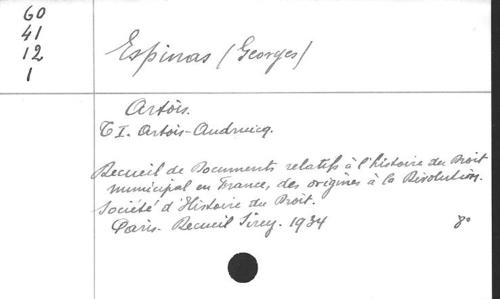 60
41
12
1
Espinas (Georges)
Artois.
T I. Artois-Audruicq.
Recueil de Documents relatifs à l'histoire du Droit
municipal en France, des origines à la Révolution.
Société d'Histoire du Droit.
Paris. Recueil Sirey. 1934 8°